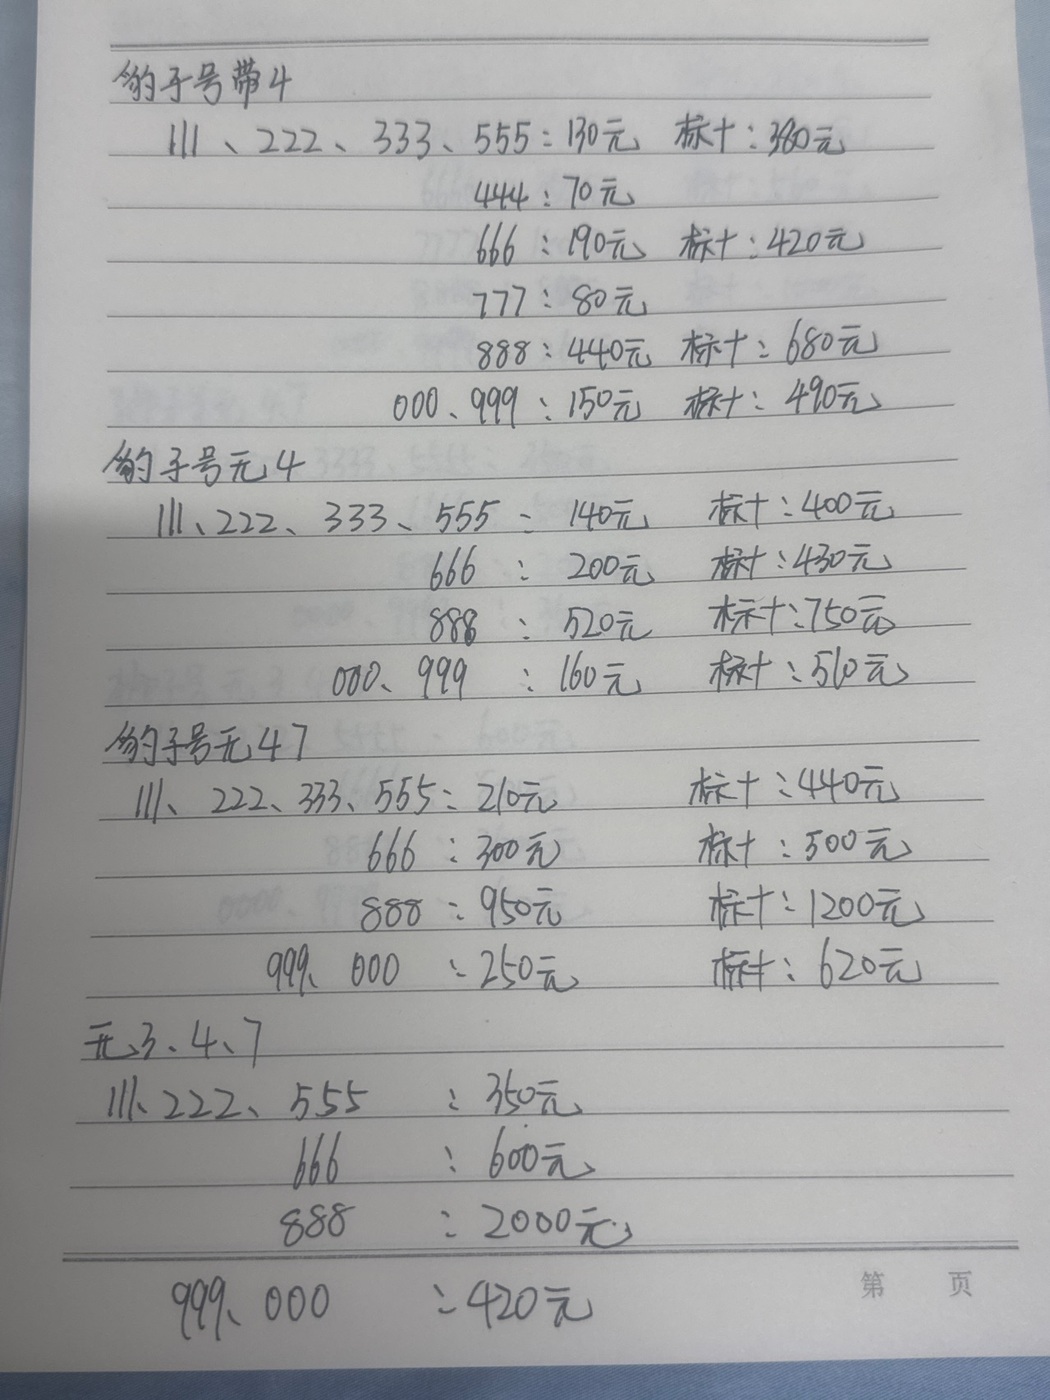 豹子号带4
111、222、333、555：130元 标十：380元
444：70元
666：190元 标十：420元
777：80元
888：440元 标十：680元
000、999：150元 标十：490元
豹子号无4
111、222、333、555：140元 标十：400元
666：200元 标十：430元
888：520元 标十：750元
000、999：160元 标十：510元
豹子号无47
111、222、333、555：210元 标十：440元
666：300元 标十：500元
888：950元 标十：1200元
999、000：250元 标十：620元
无3、4、7
111、222、555：350元
666：600元
888：2000元
999、000：420元
第 页